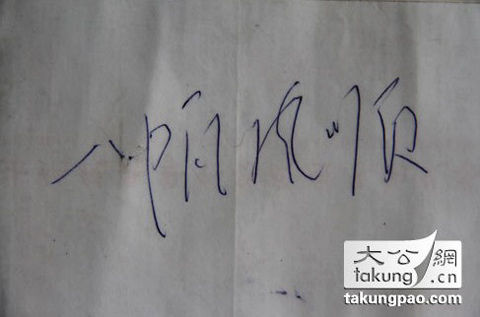 一帆风顺
大公網
takung
.cn
takungpao.com